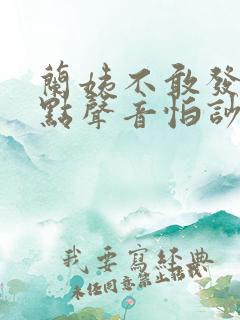 蘭姨不敢發
點聲音怕訬
我要寫經典
未经同意禁止转载